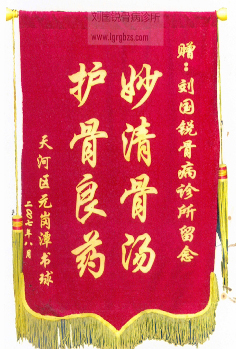 刘国锐骨病诊所
www.lgrgbzs.com
赠：刘国锐骨病诊所留念
妙清骨汤
护骨良药
天河区元岗漳书球
二〇〇七年八月